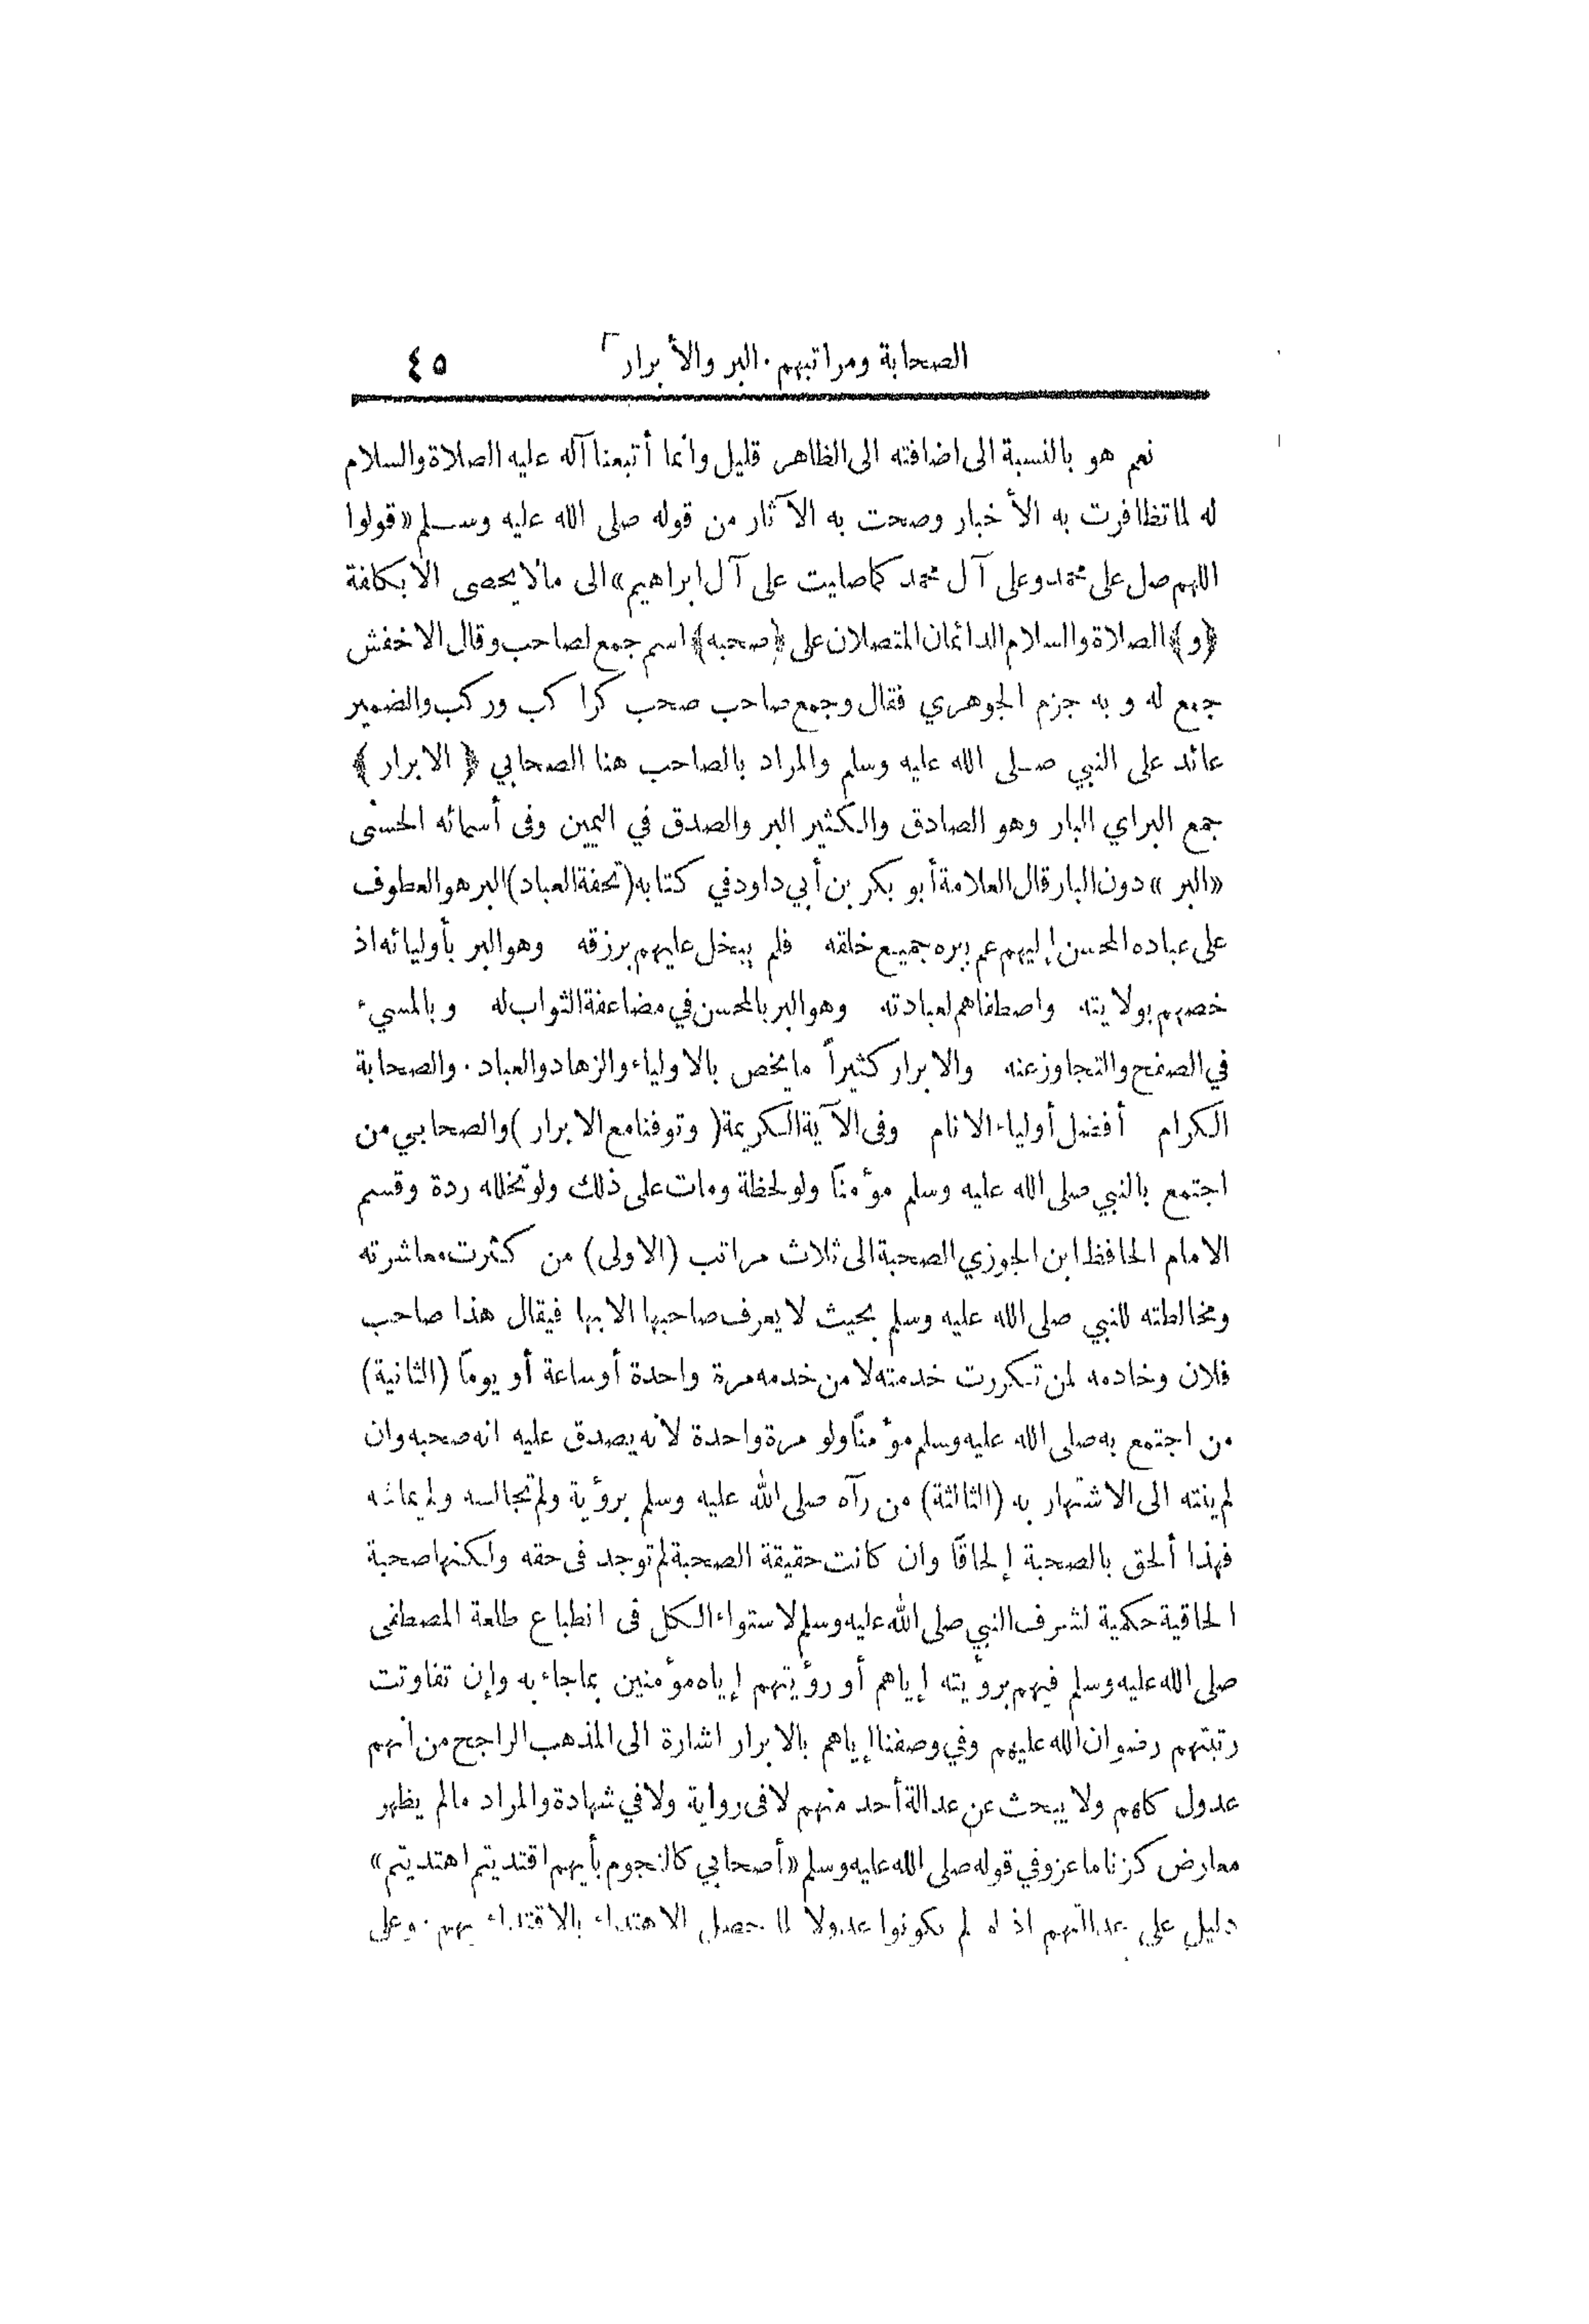 الصحابة ومراتبهم . البر والأبرار ٤٥
نعم هو بالنسبة الى اضافته الى الظاهر قليل وانما أتبعنا آله عليه الصلاة والسلام
له لما تظافرت به الأخبار وصحت به الآثار من قوله صلى الله عليه وسلم «قولوا
اللهم صل على محمد وعلى آل محمد كما صليت على آل ابراهيم» الى ما لا يحصى الا بكلفة
﴿و﴾ الصلاة والسلام الدائمان المتصلان على ﴿صحبه﴾ اسم جمع لصاحب وقال الاخفش
جمع له وبه جزم الجوهري فقال وجمع صاحب صحب كراكب وركب والضمير
عائد على النبي صلى الله عليه وسلم والمراد بالصاحب هنا الصحابي ﴿الابرار﴾
جمع البر اي البار وهو الصادق والكثير البر والصدق في اليمين وفى أسمائه الحسنى
«البر» دون البار قال العلامة أبو بكر بن أبي داود في كتابه (تحفة العباد) البر هو العطوف
على عباده المحسن إليهم عم ببره جميع خلقه فلم يبخل عليهم برزقه وهو البر بأوليائه اذ
خصهم بولايته واصطفاهم لعبادته وهو البر بالمحسن في مضاعفة الثواب له وبالمسيء
في الصفح والتجاوز عنه والابرار كثيراً ما يخص بالاولياء والزهاد والعباد . والصحابة
الكرام أفضل أولياء الانام وفى الآية الكريمة (وتوفنا مع الابرار) والصحابي من
اجتمع بالنبي صلى الله عليه وسلم مؤمناً ولو لحظة ومات على ذلك ولو تخلله ردة وقسم
الامام الحافظ ابن الجوزي الصحبة الى ثلاث مراتب (الاولى) من كثرت معاشرته
ومخالطته للنبي صلى الله عليه وسلم بحيث لا يعرف صاحبها الا بها فيقال هذا صاحب
فلان وخادمه لمن تكررت خدمته لا من خدمه مرة واحدة أو ساعة أو يوماً (الثانية)
من اجتمع به صلى الله عليه وسلم مؤمناً ولو مرة واحدة لانه يصدق عليه انه صحبه وان
لم ينته الى الاشتهار به (الثالثة) من رآه صلى الله عليه وسلم برؤية ولم تجالسه ولم يماشه
فهذا ألحق بالصحبة إلحاقاً وان كانت حقيقة الصحبة لم توجد فى حقه ولكنها صحبة
الحاقية حكمية لشرف النبي صلى الله عليه وسلم لاستواء الكل فى انطباع طلعة المصطفى
صلى الله عليه وسلم فيهم برؤيته إياهم أو رؤيتهم إياه مؤمنين بما جاء به وإن تفاوتت
رتبتهم رضوان الله عليهم وفي وصفنا إياهم بالابرار اشارة الى المذهب الراجح من انهم
عدول كلهم ولا يبحث عن عدالة أحد منهم لا فى رواية ولا في شهادة والمراد ما لم يظهر
معارض كزنا ماعز وفي قوله صلى الله عليه وسلم «أصحابي كالنجوم بأيهم اقتديتم اهتديتم»
دليل على عدالتهم اذ لو لم يكونوا عدولا لما حصل الاهتداء بالاقتداء بهم . وعلى